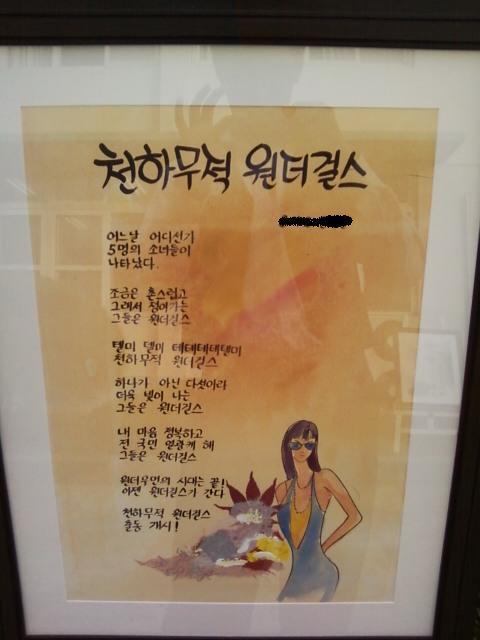 천하무적 원더걸스
어느날 어디선가
5명의 소녀들이
나타났다.
조금은 촌스럽고
그래서 정이가는
그들은 원더걸스
텔미 텔미 테테테테텔미
천하무적 원더걸스
하나가 아닌 다섯이라
더욱 빛이 나는
그들은 원더걸스
내 마음 정복하고
전 국민 열광케 해
그들은 원더걸스
원더우먼의 시대는 끝!
이젠 원더걸스가 간다
천하무적 원더걸스
출동 개시!